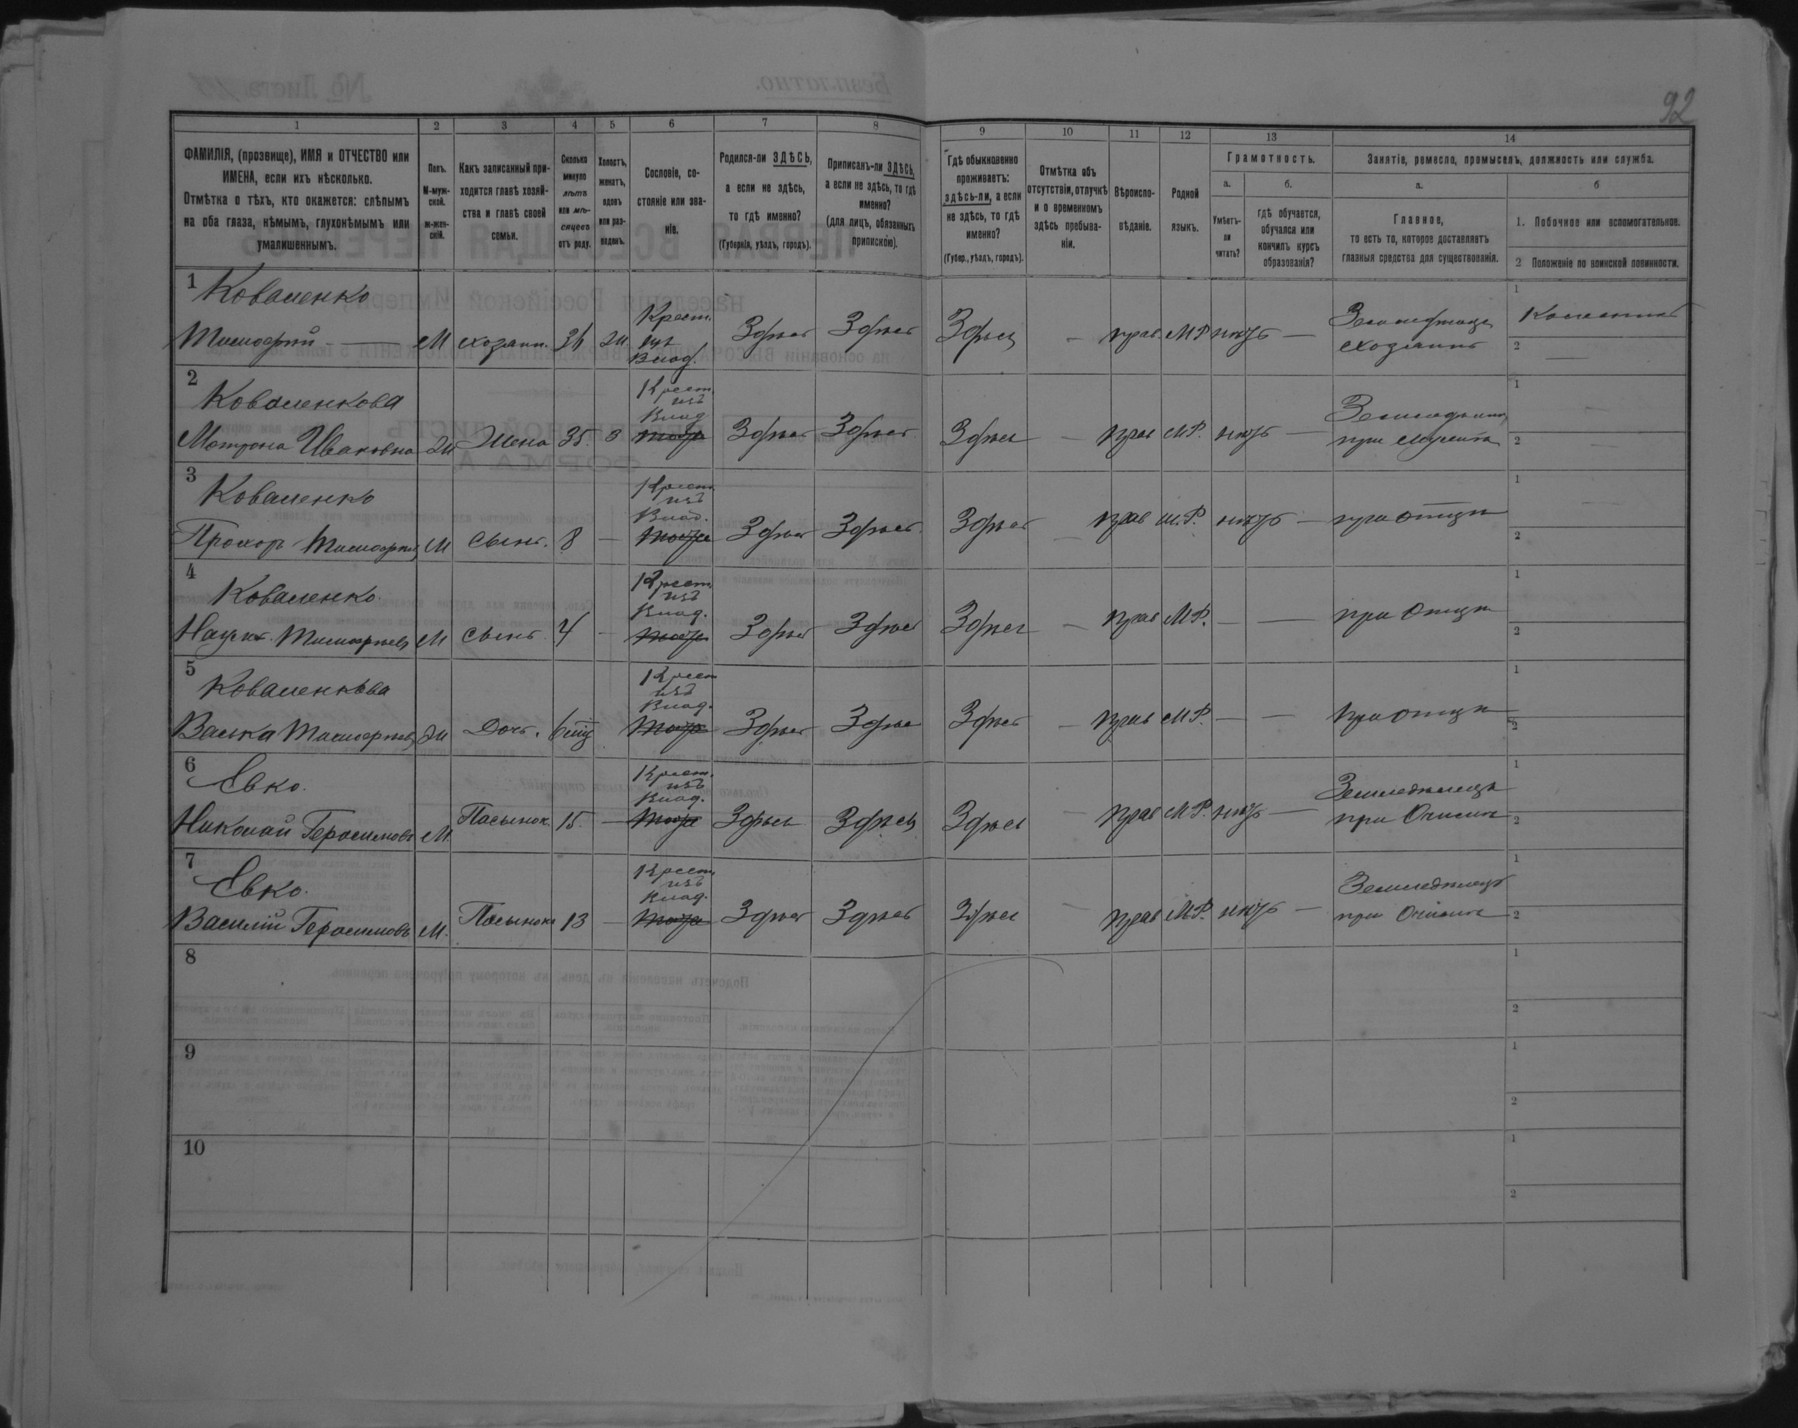 92
1 2 3 4 5 6 7 8 9 10 11 12 13 14
ФАМИЛІЯ, (прозвище), ИМЯ и ОТЧЕСТВО или
ИМЕНА, если ихъ нѣсколько.
Отмѣтка о тѣхъ, кто окажется: слѣпымъ
на оба глаза, нѣмымъ, глухонѣмымъ или
умалишеннымъ.
Полъ.
М-муж-
ской.
ж-жен-
скій.
Какъ записанный при-
ходится главѣ хозяй-
ства и главѣ своей
семьи.
Сколько
минуло
лѣтъ
или мѣ-
сяцевъ
отъ роду.
Холостъ,
женатъ,
вдовъ
или раз-
веденъ.
Сословіе, со-
стояніе или зва-
ніе.
Родился-ли ЗДѢСЬ,
а если не здѣсь,
то гдѣ именно?
(Губернія, уѣздъ, городъ).
Приписанъ-ли ЗДѢСЬ,
а если не здѣсь, то гдѣ
именно?
(для лицъ, обязанныхъ
припискою).
Гдѣ обыкновенно
проживаетъ:
здѣсь-ли, а если
не здѣсь, то гдѣ
именно?
(Губер., уѣздъ, городъ).
Отмѣтка объ
отсутствіи, отлучкѣ
и о временномъ
здѣсь пребыва-
ніи.
Вѣроиспо-
вѣданіе.
Родной
языкъ.
Грамотность.
а.
Умѣетъ-
ли
читать?
б.
гдѣ обучается,
обучался или
кончилъ курсъ
образованія?
Занятіе, ремесло, промыселъ, должность или служба.
а.
Главное,
то есть то, которое доставляетъ
главныя средства для существованія.
б
1. Побочное или вспомогательное.
2 Положеніе по воинской повинности.
1 Коваленко
Тимофей — М хозяин. 36 ж Крест. изъ Влад. Здѣсь Здѣсь Здѣсь — прав. М.Р. нѣтъ —
хозяинъ
1
2 —
2 Коваленкова
Мотрона Ивановна ж Жена 35 з Крест. изъ Влад. Здѣсь Здѣсь Здѣсь — прав М.Р. нѣтъ —
при мужѣ
1
2
3 Коваленко
Прохор Тимофеев М сынъ. 8 — Крест. изъ Влад. Здѣсь Здѣсь Здѣсь — прав М.Р. нѣтъ — при отцѣ
1
2
4 Коваленко
Наумъ Тимофеев М сынъ 4 — Крест. изъ Влад. Здѣсь Здѣсь Здѣсь — прав М.Р. — — при отцѣ
1
2
5 Коваленкова
Тимофеев ж Дочь. 6 Крест. изъ Влад. Здѣсь Здѣсь Здѣсь — прав М.Р. — — при отцѣ
1
2
6 Евко.
Николай Герасимовъ М Пасынок 15. — Крест. изъ Влад. Здѣсь Здѣсь Здѣсь — прав М.Р. нѣтъ — Земледѣлецъ
при
1
2
7 Евко.
Василий Герасимовъ М. Пасынок 13 — Крест. изъ Влад. Здѣсь Здѣсь Здѣсь — прав М.Р. нѣтъ — Земледѣлецъ
при
1
2
8
1
2
9
1
2
10
1
2